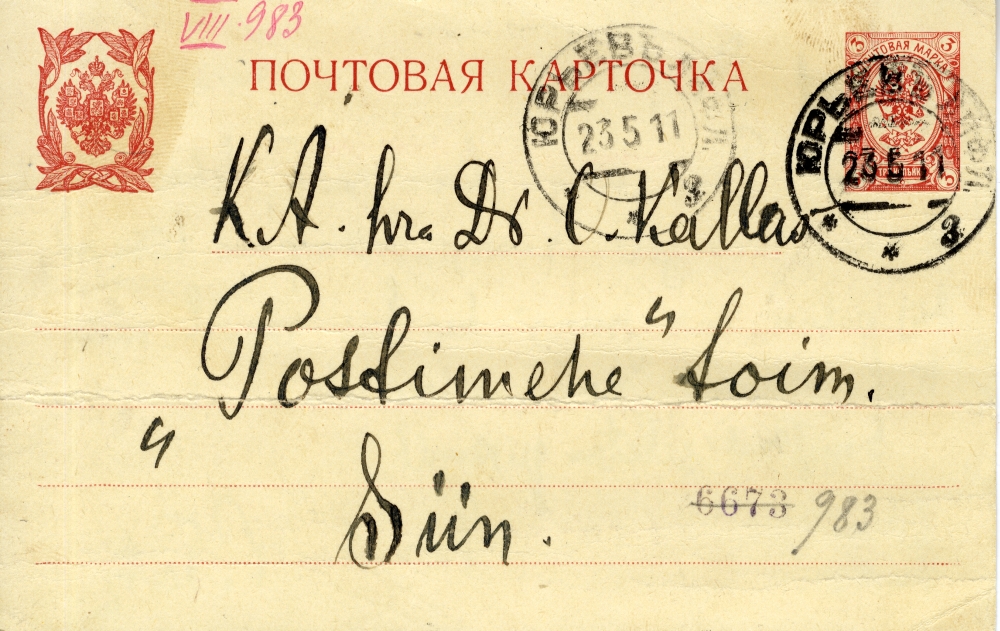 VIII.983
ПОЧТОВАЯ КАРТОЧКА
ПОЧТОВАЯ МАРКА
3 3
3 3
ЮРЬЕВЪ
23 5 11
3
ЮРЬЕВЪ
23 5 11
3
K.A. hra Dr. O. Kallas
„Postimehe“ toim.
Siin.
6673 983